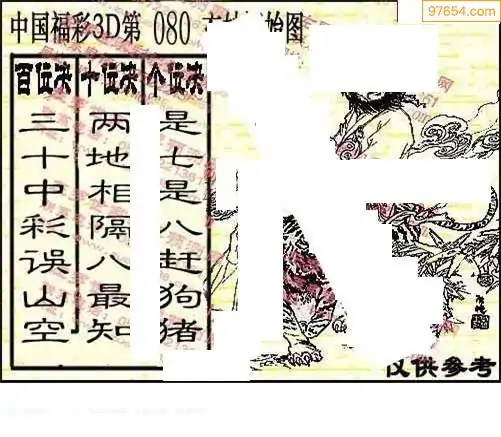 中国福彩3D第 080
图
97654.com
百位决
三十中彩误山空
十位决
两地相隔八最知
个位决
是七是八赶狗猪
仅供参考